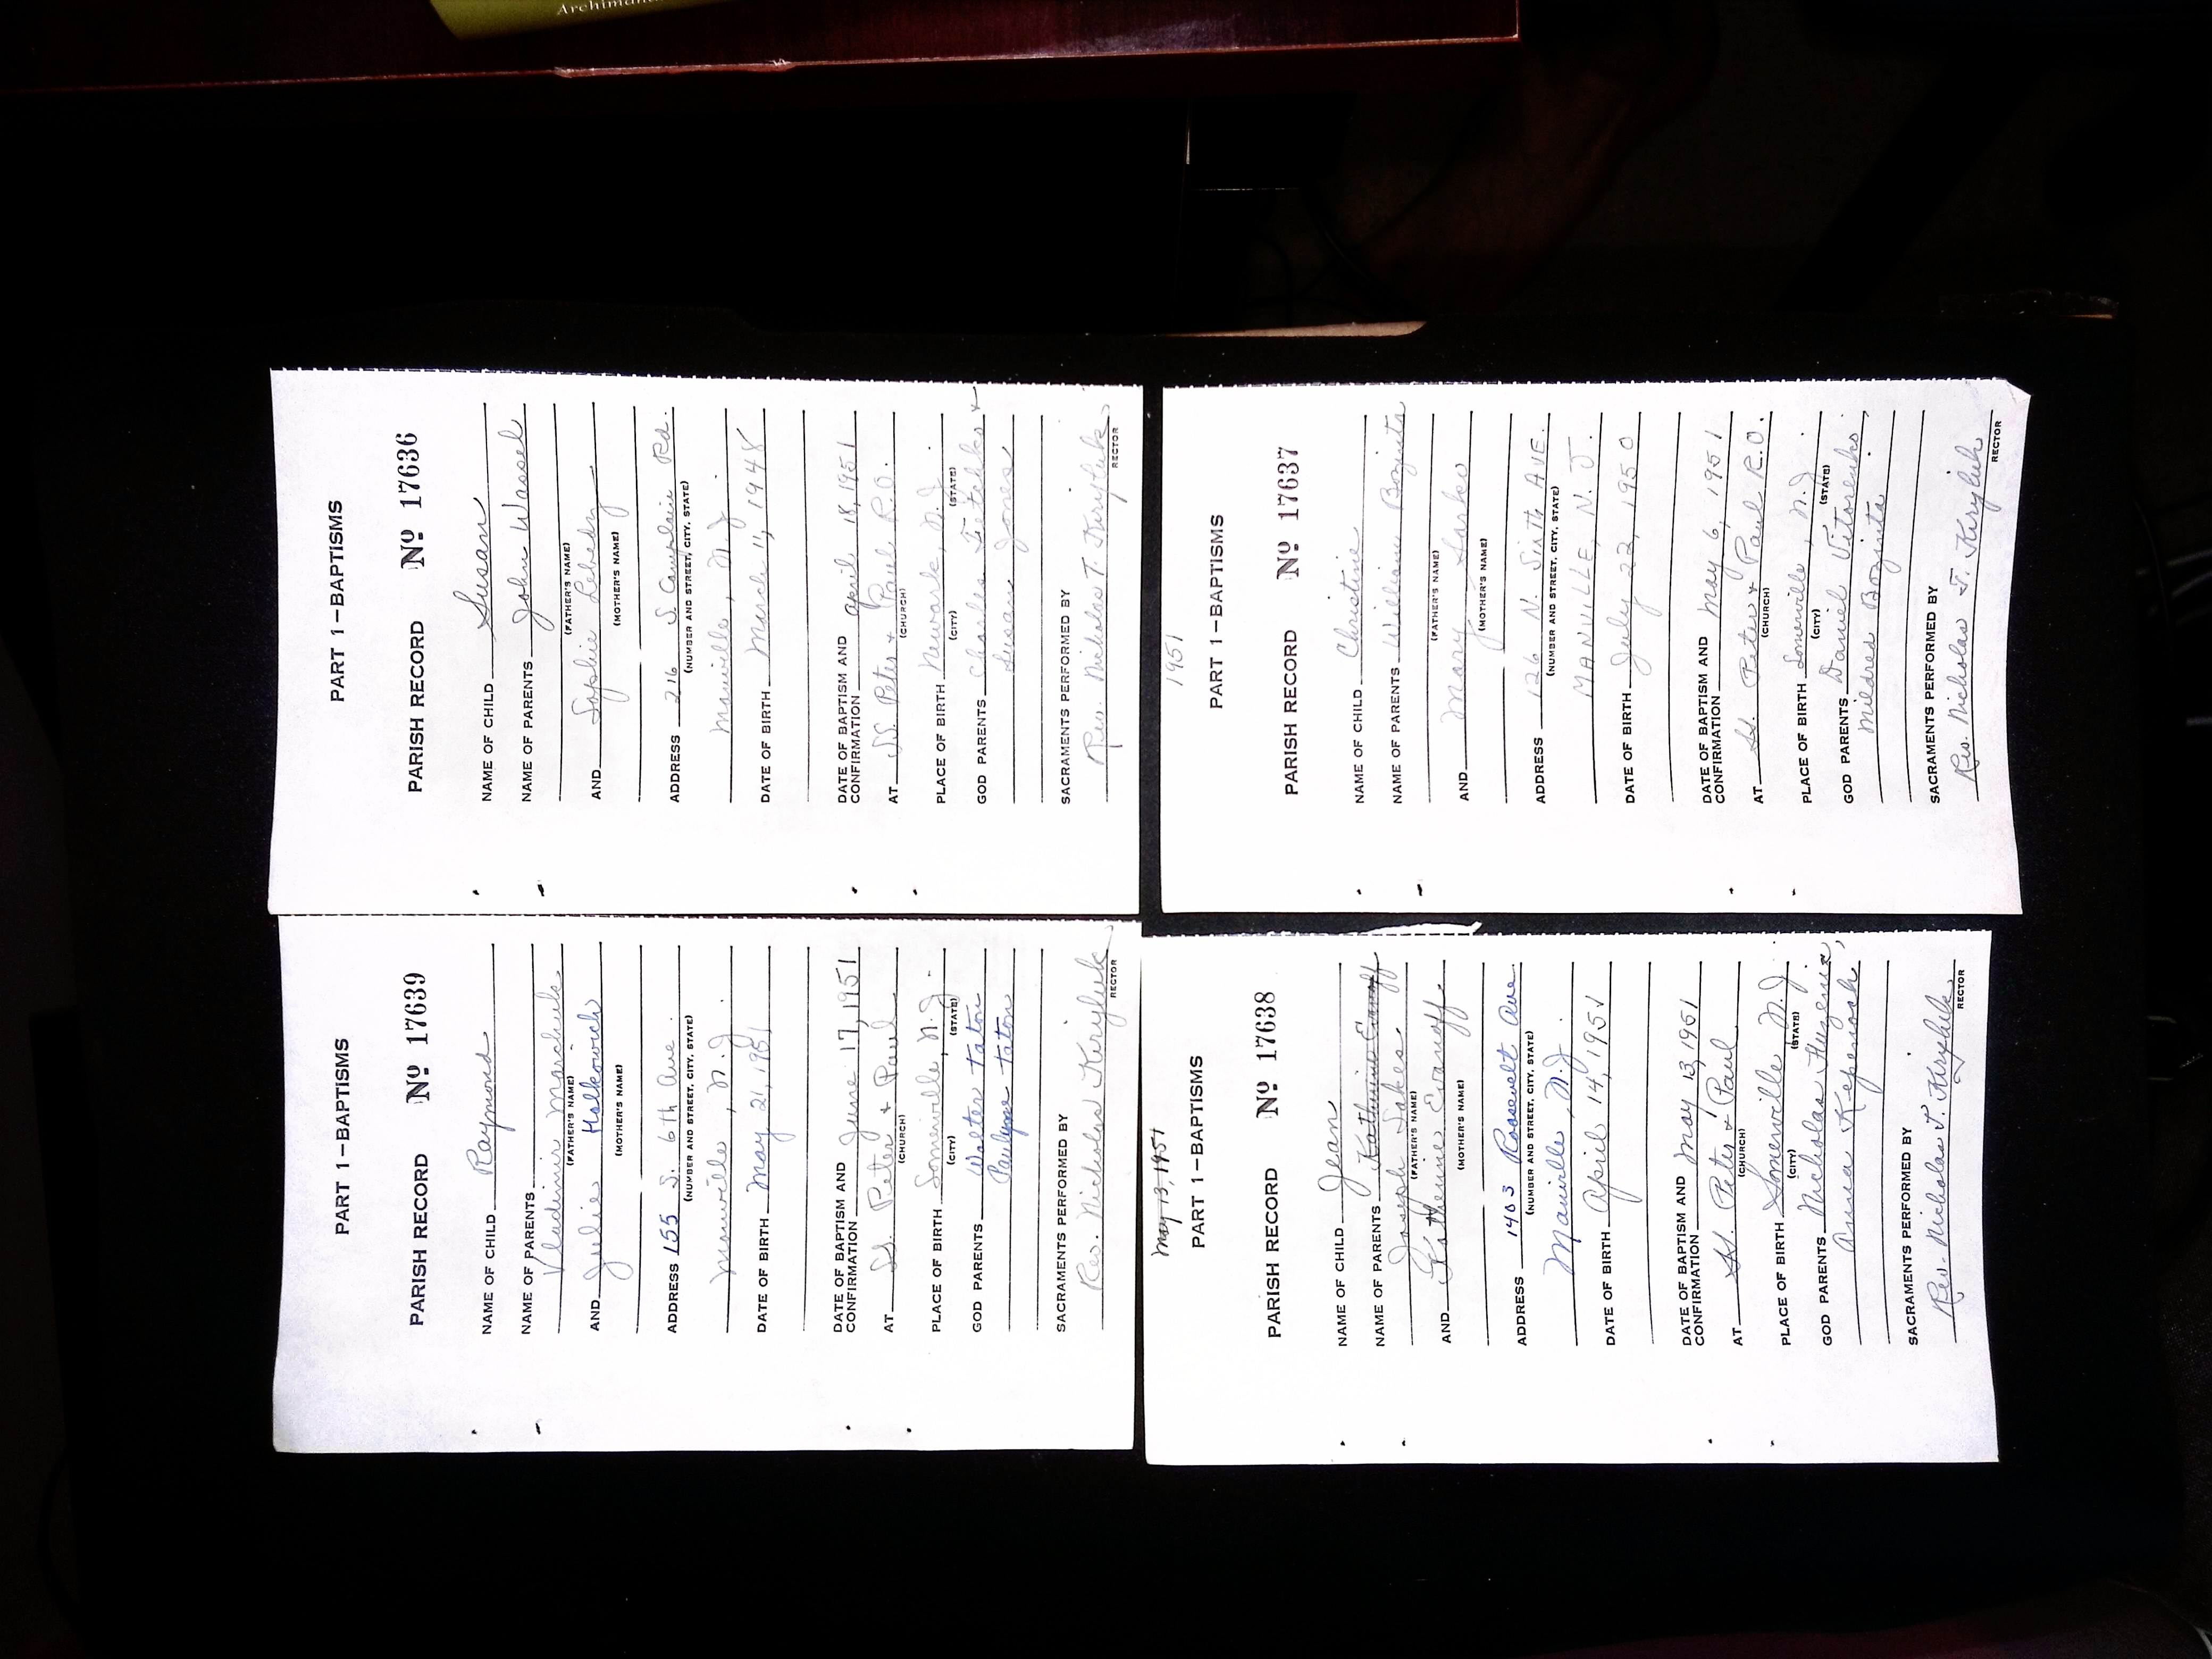 PART 1—BAPTISMS
PARISH RECORD Nº 17639
NAME OF CHILD Raymond
NAME OF PARENTS
Vladimir Marchuk
(FATHER'S NAME)
AND Julie Halkowich
(MOTHER'S NAME)
ADDRESS 155 S. 6th Ave.
(NUMBER AND STREET, CITY, STATE)
Manville, N.J.
DATE OF BIRTH May 21, 1951
DATE OF BAPTISM AND
CONFIRMATION June 17, 1951
AT SS. Peter + Paul
(CHURCH)
PLACE OF BIRTH Somerville, N.J.
(CITY) (STATE)
GOD PARENTS Walter Taton
Taton
SACRAMENTS PERFORMED BY
Rev. Nicholas Kiryluk
RECTOR
PART 1—BAPTISMS
PARISH RECORD Nº 17636
NAME OF CHILD Susan
NAME OF PARENTS John Wassel
(FATHER'S NAME)
AND Sophie Lebedz
(MOTHER'S NAME)
ADDRESS 216 S. Camplain Rd.
(NUMBER AND STREET, CITY, STATE)
Manville, N.J.
DATE OF BIRTH March 11, 1948
DATE OF BAPTISM AND
CONFIRMATION April 18, 1951
AT SS. Peter + Paul R.O.
(CHURCH)
PLACE OF BIRTH Newark, N.J.
(CITY) (STATE)
GOD PARENTS Charles +
Susan Jones
SACRAMENTS PERFORMED BY
Rev. Nicholas T. Kiryluk
RECTOR
May 13, 1951
PART 1—BAPTISMS
PARISH RECORD Nº 17638
NAME OF CHILD Jean
NAME OF PARENTS Katherine Evanoff
Joseph Sakes
(FATHER'S NAME)
AND Katherine Evanoff
(MOTHER'S NAME)
ADDRESS 1403 Roosevelt Ave.
(NUMBER AND STREET, CITY, STATE)
Manville, N.J.
DATE OF BIRTH April 14, 1951
DATE OF BAPTISM AND
CONFIRMATION May 13, 1951
AT SS. Peter + Paul
(CHURCH)
PLACE OF BIRTH Somerville, N.J.
(CITY) (STATE)
GOD PARENTS Nicholas
Anna Kepenach
SACRAMENTS PERFORMED BY
Rev. Nicholas T. Kiryluk
RECTOR
1951
PART 1—BAPTISMS
PARISH RECORD Nº 17637
NAME OF CHILD Christine
NAME OF PARENTS William Bozinta
(FATHER'S NAME)
AND Mary Sarko
(MOTHER'S NAME)
ADDRESS 126 N. Sixth AVE.
(NUMBER AND STREET, CITY, STATE)
MANVILLE, N. J.
DATE OF BIRTH July 22, 1950
DATE OF BAPTISM AND
CONFIRMATION May 6, 1951
AT SS. Peter + Paul R.O.
(CHURCH)
PLACE OF BIRTH Somerville, N.J.
(CITY) (STATE)
GOD PARENTS Daniel Vitorenko,
Mildred Bozinta
SACRAMENTS PERFORMED BY
Rev. Nicholas T. Kiryluk
RECTOR